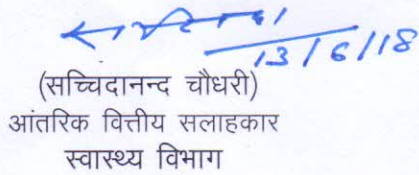 13/6/18
(सच्चिदानन्द चौधरी)
आंतरिक वित्तीय सलाहकार
स्वास्थ्य विभाग